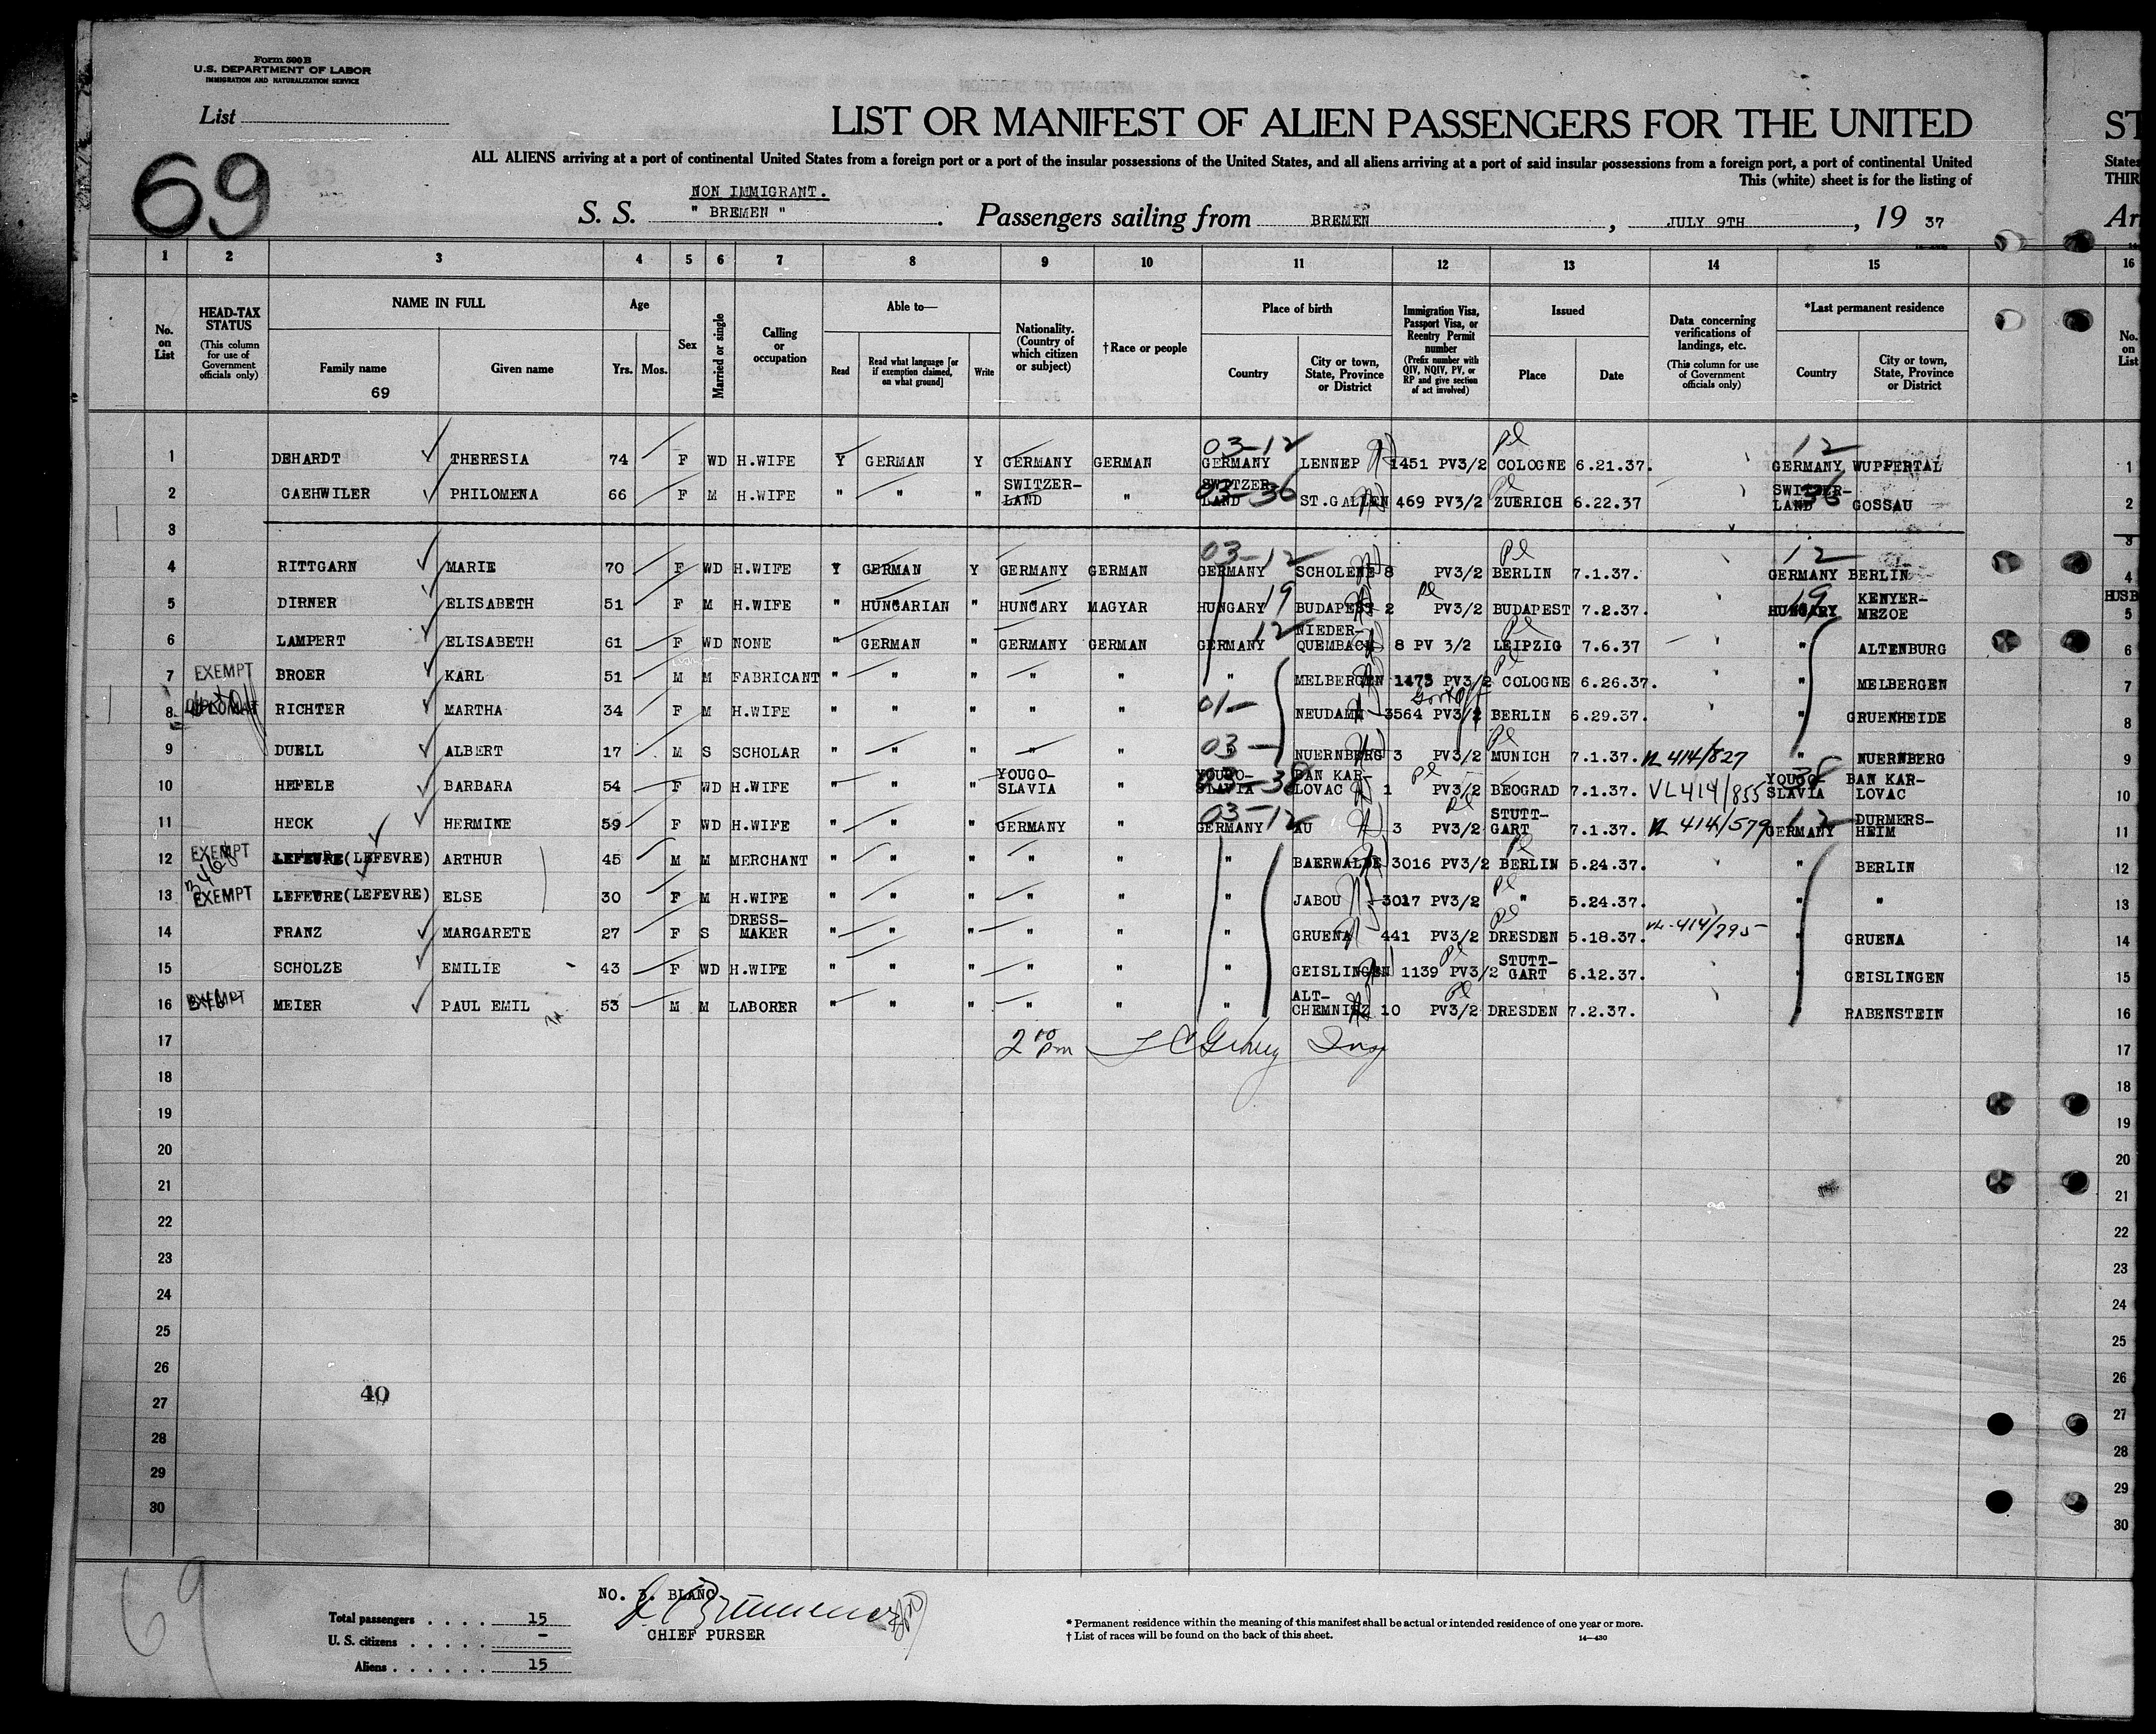 Form 500 B
U.S. DEPARTMENT OF LABOR
IMMIGRATION AND NATURALIZATION SERVICE
List
69
LIST OR MANIFEST OF ALIEN PASSENGERS FOR THE UNITED ST
ALL ALIENS arriving at a port of continental United States from a foreign port or a port of the insular possessions of the United States, and all aliens arriving at a port of said insular possessions from a foreign port, a port of continental United States
This (white) sheet is for the listing of THIR
NON IMMIGRANT.
S. S. " BREMEN ". Passengers sailing from BREMEN, JULY 9TH, 19 37 Ar
1 2 3 4 5 6 7 8 9 10 11 12 13 14 15 16
No. on List
HEAD-TAX STATUS (This column for use of Government officials only)
NAME IN FULL
Family name Given name
69
Age
Yrs. Mos.
Sex
Married or single
Calling or occupation
Able to—
Read
Read what language [or if exemption claimed, on what ground]
Write
Nationality. (Country of which citizen or subject)
†Race or people
Place of birth
Country
City or town, State, Province or District
Immigration Visa, Passport Visa, or Reentry Permit number
(Prefix number with QIV, NQIV, PV, or RP and give section of act involved)
Issued
Place Date
Data concerning verifications of landings, etc.
(This column for use of Government officials only)
*Last permanent residence
Country
City or town, State, Province or District
No. on List
03-12 Pl 12
1 DEHARDT THERESIA 74 F WD H.WIFE Y GERMAN Y GERMANY GERMAN GERMANY LENNEP 1451 PV3/2 COLOGNE 6.21.37. GERMANY WUPPERTAL 1
2 GAEHWILER PHILOMENA 66 F M H.WIFE " " " SWITZER-LAND " SWITZER-LAND 03-36 ST.GALLEN 469 PV3/2 ZUERICH 6.22.37 SWITZER-LAND 36 GOSSAU 2
3 3
03-12 Pl 12
4 RITTGARN MARIE 70 F WD H.WIFE Y GERMAN Y GERMANY GERMAN GERMANY SCHOLENE 8 PV3/2 BERLIN 7.1.37. GERMANY BERLIN 4
5 DIRNER ELISABETH 51 F M H.WIFE " HUNGARIAN " HUNGARY MAGYAR HUNGARY 19 BUDAPEST 2 PV3/2 BUDAPEST 7.2.37. HUNGARY 19 KENYER-MEZOE HUSB 5
6 LAMPERT ELISABETH 61 F WD NONE " GERMAN " GERMANY GERMAN GERMANY 12 NIEDER-QUEMBACH 8 PV 3/2 LEIPZIG 7.6.37 " ALTENBURG 6
7 EXEMPT BROER KARL 51 M M FABRICANT " " " " " " MELBERGEN 1473 PV3/2 COLOGNE 6.26.37. " MELBERGEN 7
8 DIPLOMAT RICHTER MARTHA 34 F M H.WIFE " " " " " 01- NEUDAMM 3564 PV3/2 BERLIN 6.29.37. " GRUENHEIDE 8
9 DUELL ALBERT 17 M S SCHOLAR " " " " " 03- " NUERNBERG 3 PV3/2 MUNICH 7.1.37. VL 414/827 " NUERNBERG 9
10 HEFELE BARBARA 54 F WD H.WIFE " " " YOUGO-SLAVIA " YOUGO-SLAVIA 03-38 BAN KAR-LOVAC 1 PV3/2 BEOGRAD 7.1.37. VL 414/855 YOUGO-SLAVIA 38 BAN KAR-LOVAC 10
11 HECK HERMINE 59 F WD H.WIFE " " " GERMANY " GERMANY 03-12 AU 3 PV3/2 STUTT-GART 7.1.37. VL 414/579 GERMANY 12 DURMERS-HEIM 11
12 EXEMPT LEFEURE (LEFEVRE) ARTHUR 45 M M MERCHANT " " " " " " BAERWALDE 3016 PV3/2 BERLIN 5.24.37. " BERLIN 12
13 EXEMPT LEFEURE (LEFEVRE) ELSE 30 F M H.WIFE " " " " " " JABOU 3017 PV3/2 " 5.24.37. " " 13
14 FRANZ MARGARETE 27 F S DRESS-MAKER " " " " " " GRUENA 441 PV3/2 DRESDEN 5.18.37. VL-414/795 " GRUENA 14
15 SCHOLZE EMILIE 43 F WD H.WIFE " " " " " " GEISLINGEN 1139 PV3/2 STUTT-GART 6.12.37. GEISLINGEN 15
16 EXEMPT MEIER PAUL EMIL 53 M M LABORER " " " " " " ALT-CHEMNITZ 10 PV3/2 DRESDEN 7.2.37. RABENSTEIN 16
17 2 00 pm Insp 17
18 18
19 19
20 20
21 21
22 22
23 23
24 24
25 25
26 26
40
27 27
28 28
29 29
30 30
69
NO. 3. BLANC
Total passengers . . . . 15
CHIEF PURSER
U. S. citizens . . . . . –
Aliens . . . . . . 15
* Permanent residence within the meaning of this manifest shall be actual or intended residence of one year or more.
† List of races will be found on the back of this sheet. 14—430